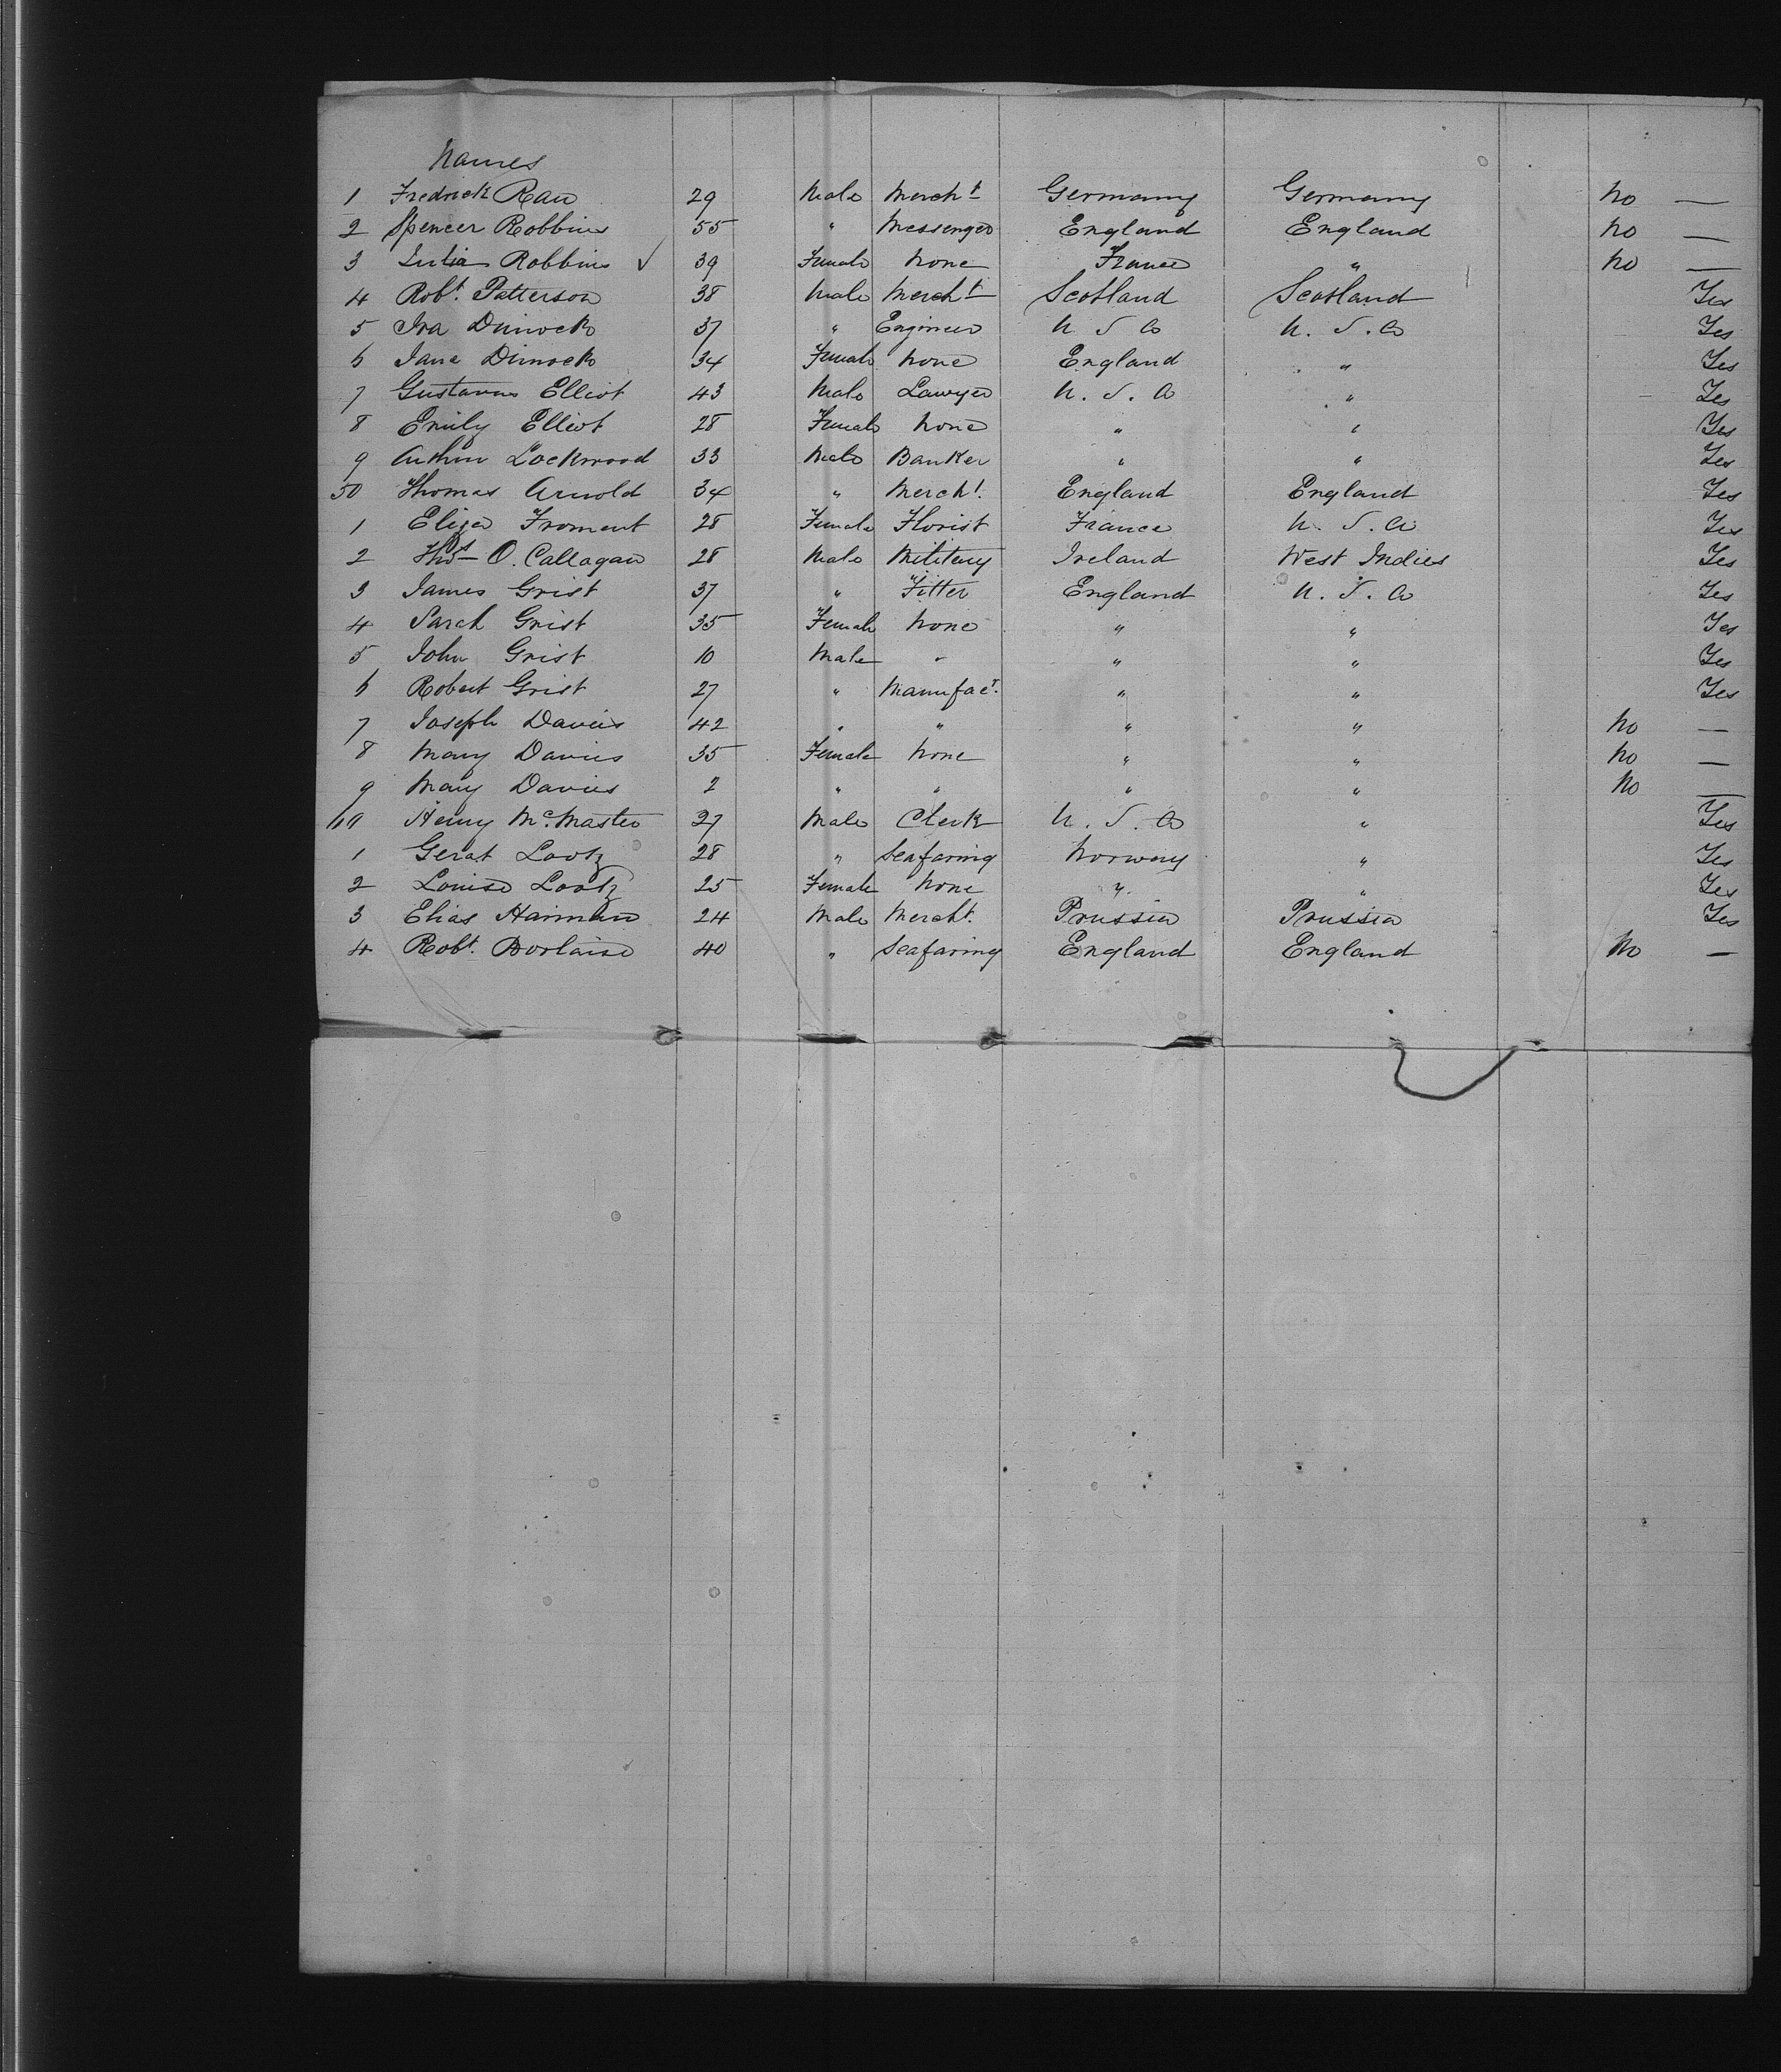 Names
1 Fredrick Rau 29 Male Mercht Germany Germany No —
2 Spencer Robbins 55 " Messenger England England No —
3 Julia Robbins ✓ 39 Female None France " No —
4 Robt. Patterson 38 Male Mercht Scotland Scotland Yes
5 Ira Dimock 37 " Engineer U. S. A U. S. A Yes
6 Jane Dimock 34 Female None England " Yes
7 Gustavus Elliot 43 Male Lawyer U. S. A " Yes
8 Emily Elliot 28 Female None " " Yes
9 Arthur Lockwood 33 Male Banker " " Yes
50 Thomas Arnold 34 " Mercht. England England Yes
1 Eliza Froment 28 Female Florist France U. S. A Yes
2 Thos O. Callagan 28 Male Military Ireland West Indies Yes
3 James Grist 37 " Fitter England U. S. A Yes
4 Sarah Grist 35 Female None " " Yes
5 John Grist 10 Male " " " Yes
6 Robert Grist 27 " Manufact. " " Yes
7 Joseph Davies 42 " " " " No —
8 Mary Davies 35 Female None " " No —
9 Mary Davies 2 " " " " No —
Henry McMaster 27 Male Clerk U. S. A " Yes
1 Gerat Lootz 28 " Seafaring Norway " Yes
2 Louise Lootz 25 Female None " " Yes
3 Elias Haiman 24 Male Mercht. Prussia Prussia Yes
4 Robt. Borlaise 40 " Seafaring England England No —